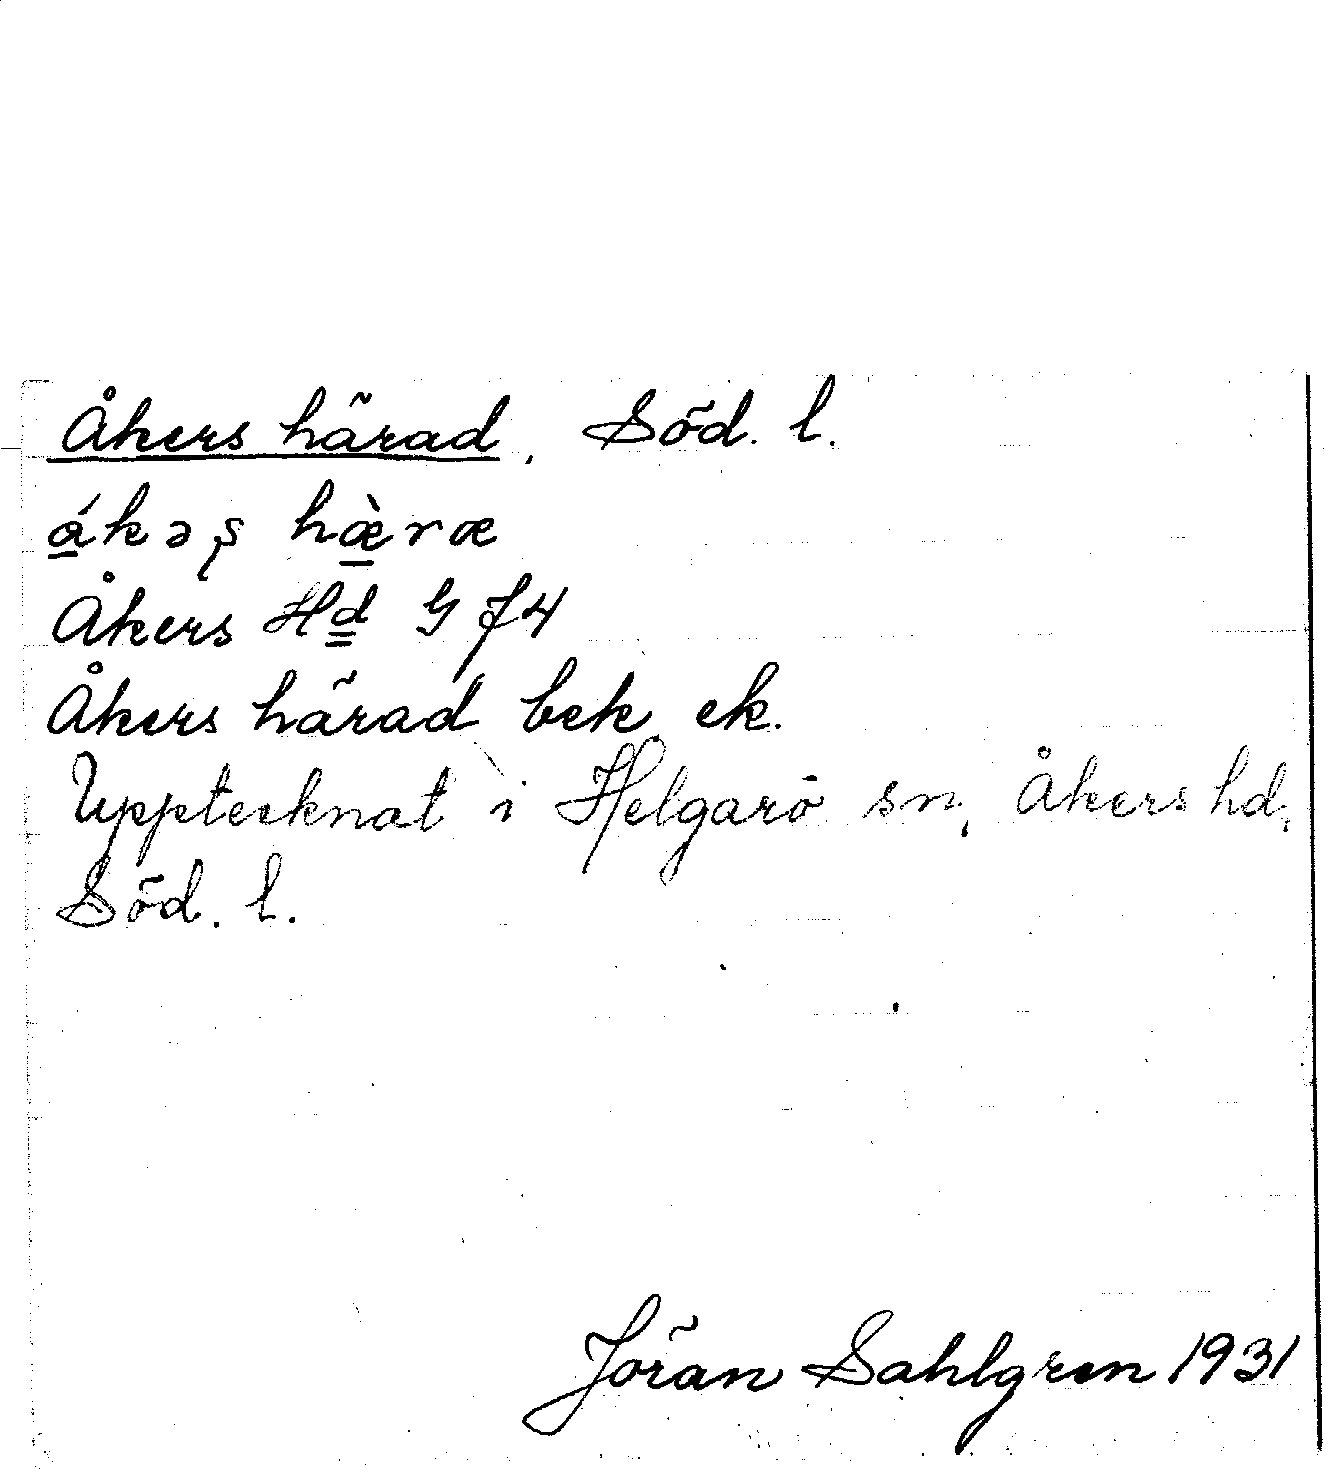 Åkers härad, Söd. l.
ákəş hæ̀ræ
Åkers Hd G J4
Åkers härad bek ek.
Upptecknat i Helgarö sn, Åkers hd,
Söd. l.
Jöran Sahlgren 1931